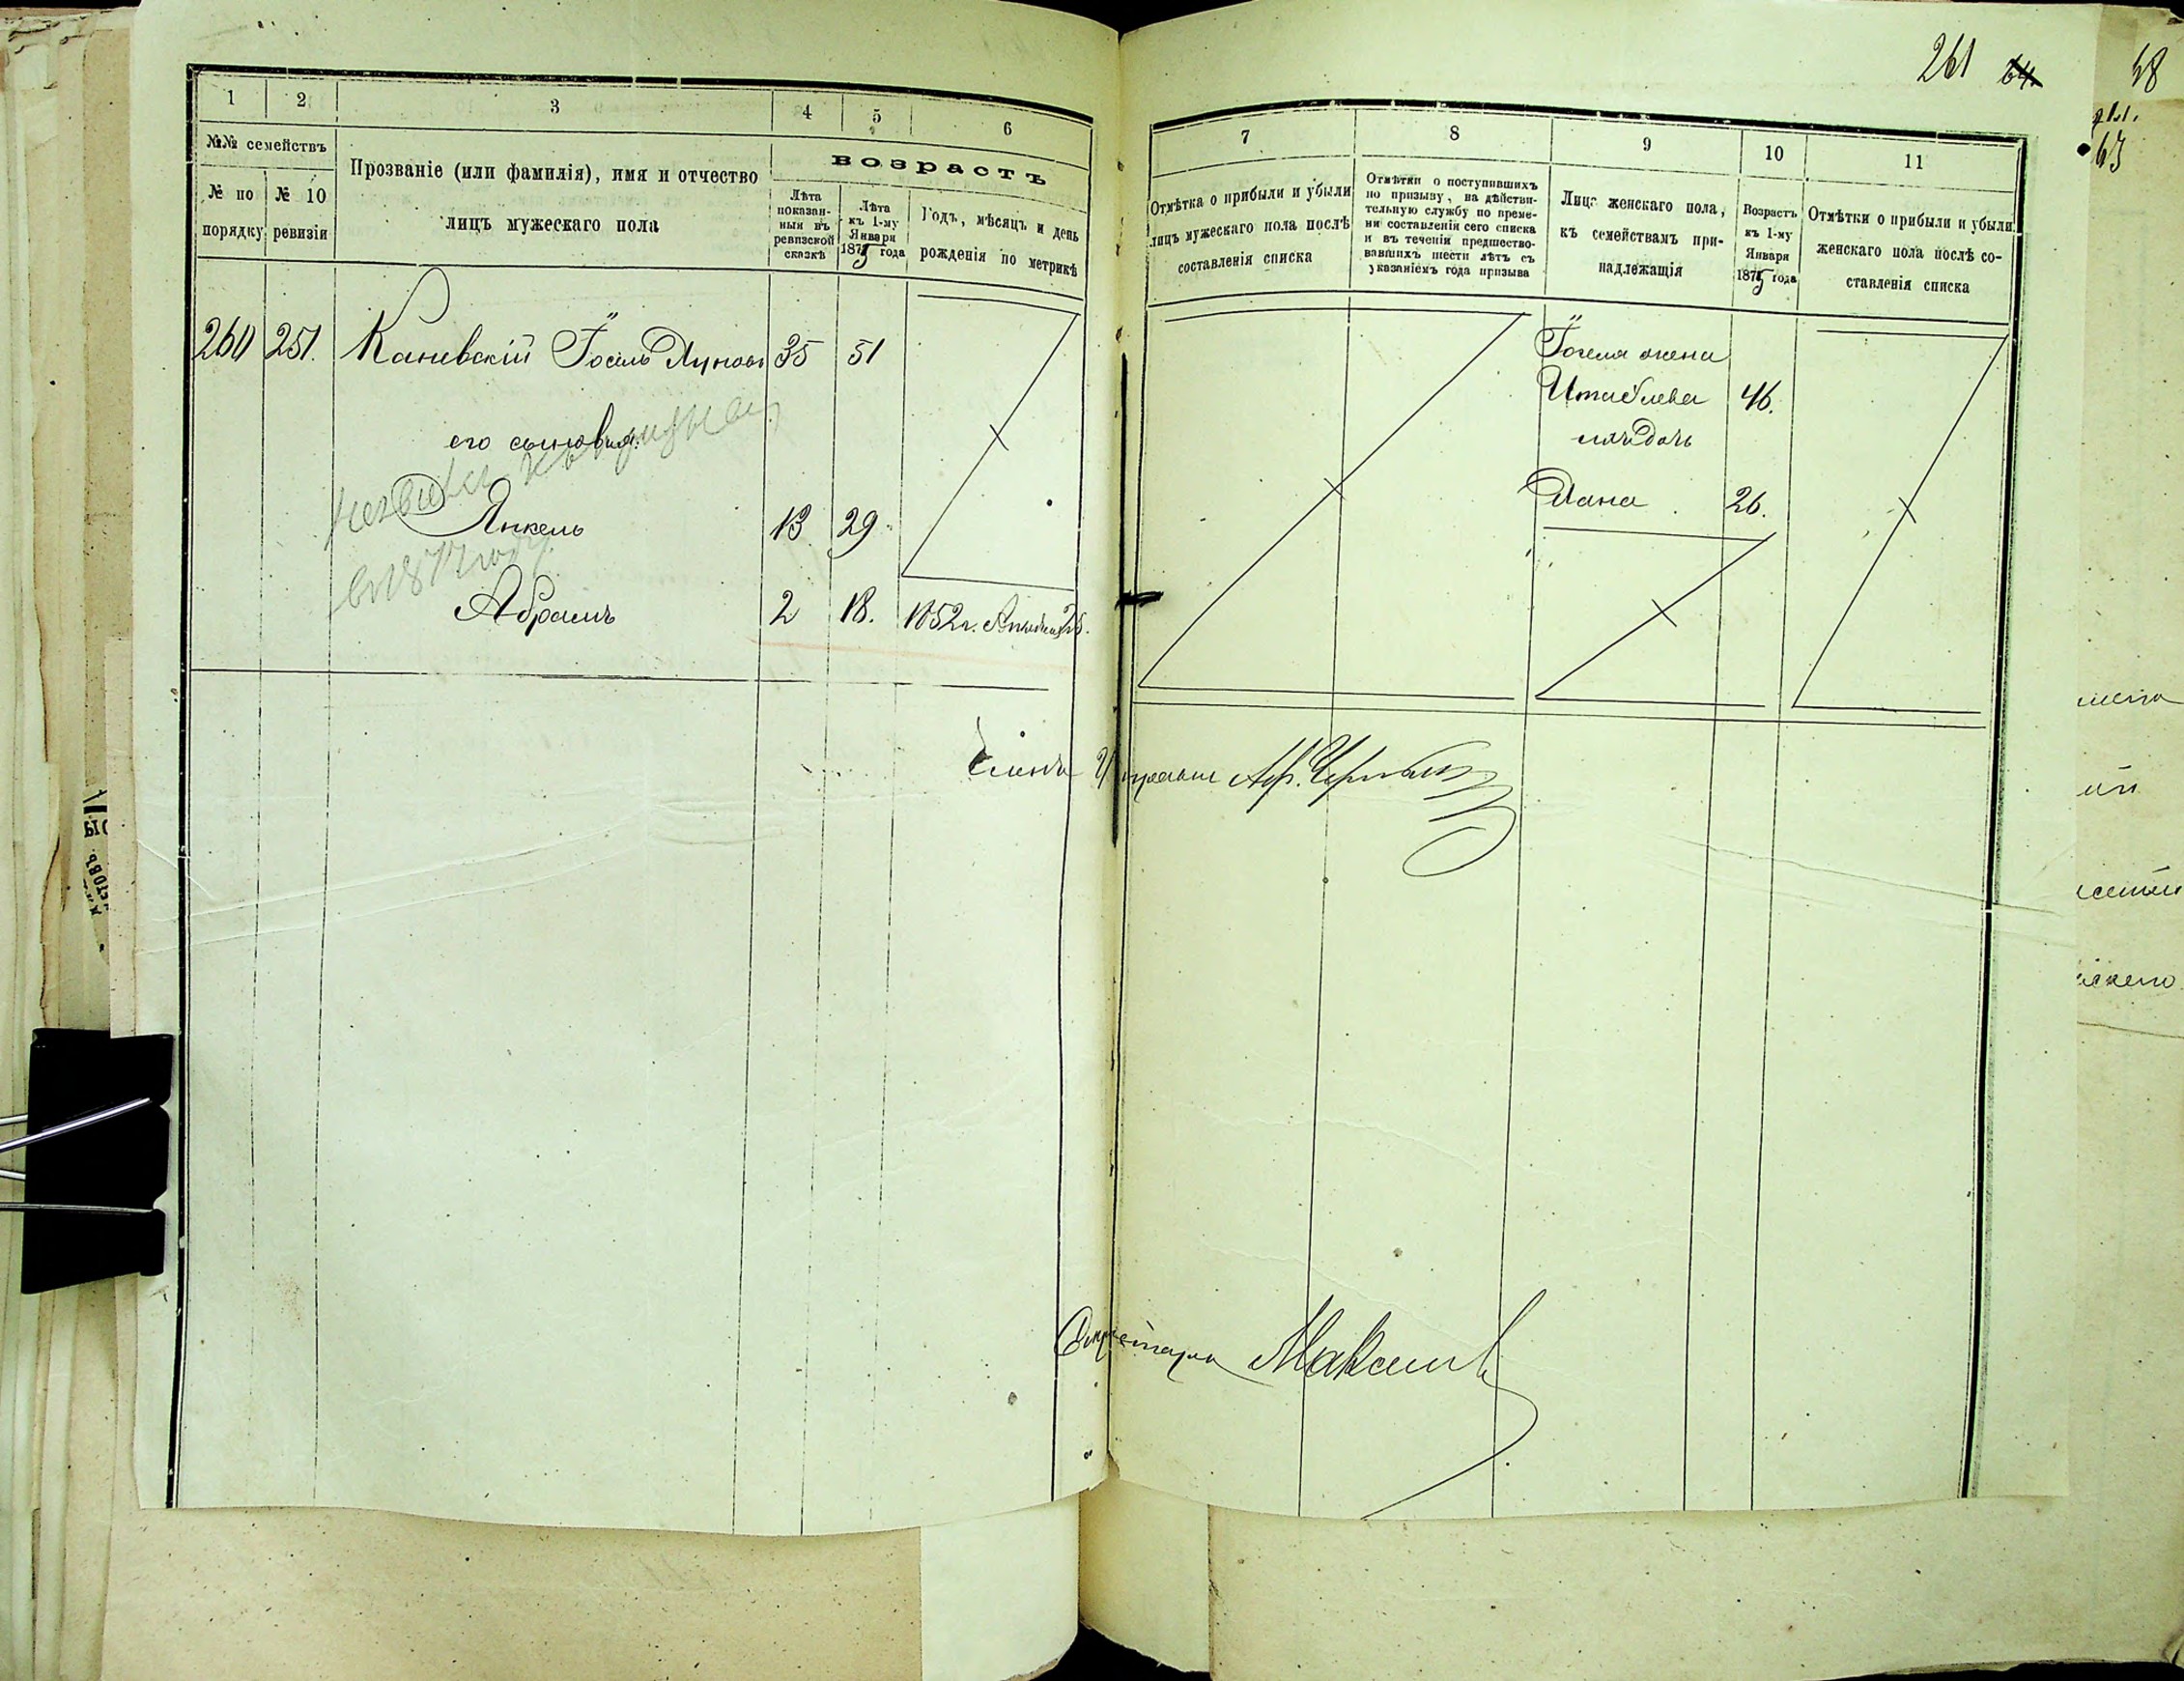 1 2 3 4 5 6
№№ семействъ
№ по порядку
№ 10 ревизіи
Прозваніе (или фамилія), имя и отчество
лицъ мужескаго пола
возрастъ
Лѣта
показан-
ныя въ
ревизской
сказкѣ
Лѣта
къ 1-му
Января
1875 года
Годъ, мѣсяцъ и день
рожденія по метрикѣ
260 251. Каневскій Іосель 35 51
его сыновья:
Янкель 13 29
Абрамъ 2 18. 1852г.
261 64
7 8 9 10 11
Отмѣтка о прибыли и убыли
лицъ мужескаго пола послѣ
составленія списка
Отмѣтки о поступившихъ
по призыву, на дѣйстви-
тельную службу по време-
ни составленія сего списка
и въ теченіи предшество-
вавшихъ шести лѣтъ съ
указаніемъ года призыва
Лица женскаго пола,
къ семействамъ при-
надлежащія
Возрастъ
къ 1-му
Января
1875 года
Отмѣтки о прибыли и убыли
женскаго пола послѣ со-
ставленія списка
Іоселя жена
46.
ихъ дочь
26.
Членъ Управы
Секретарь
58
63